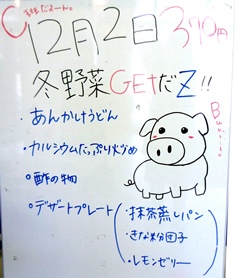 12月2日 370円
冬野菜GEtだZ!!
・あんかけうどん
・カルシウムたっぷり炒め
・酢の物
・デザートプレート
・抹茶蒸しパン
・きな粉団子
・レモンゼリー